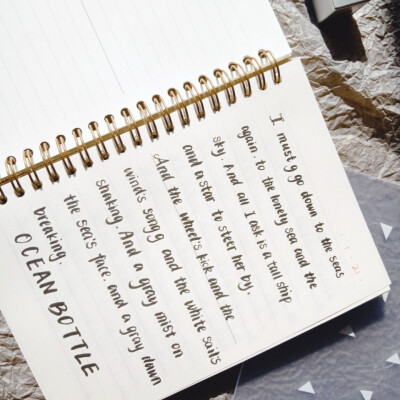 I must g go down to the seas
again, to the lonely sea and the
sky. And all I ask is a tall ship
and a star to steer her by.
And the wheel's kick and the
wind's song g and the white sail's
shaking. And a gray mist on
the sea's face. and a gray dawn
breaking.
OCEAN BOTTLE